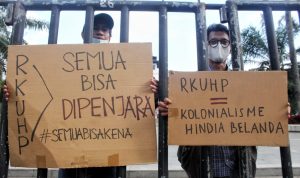 RKUHP
SEMUA
BISA
DIPENJARA
#SEMUABISAKENA
RKUHP
=
KOLONIALISME
HINDIA BELANDA